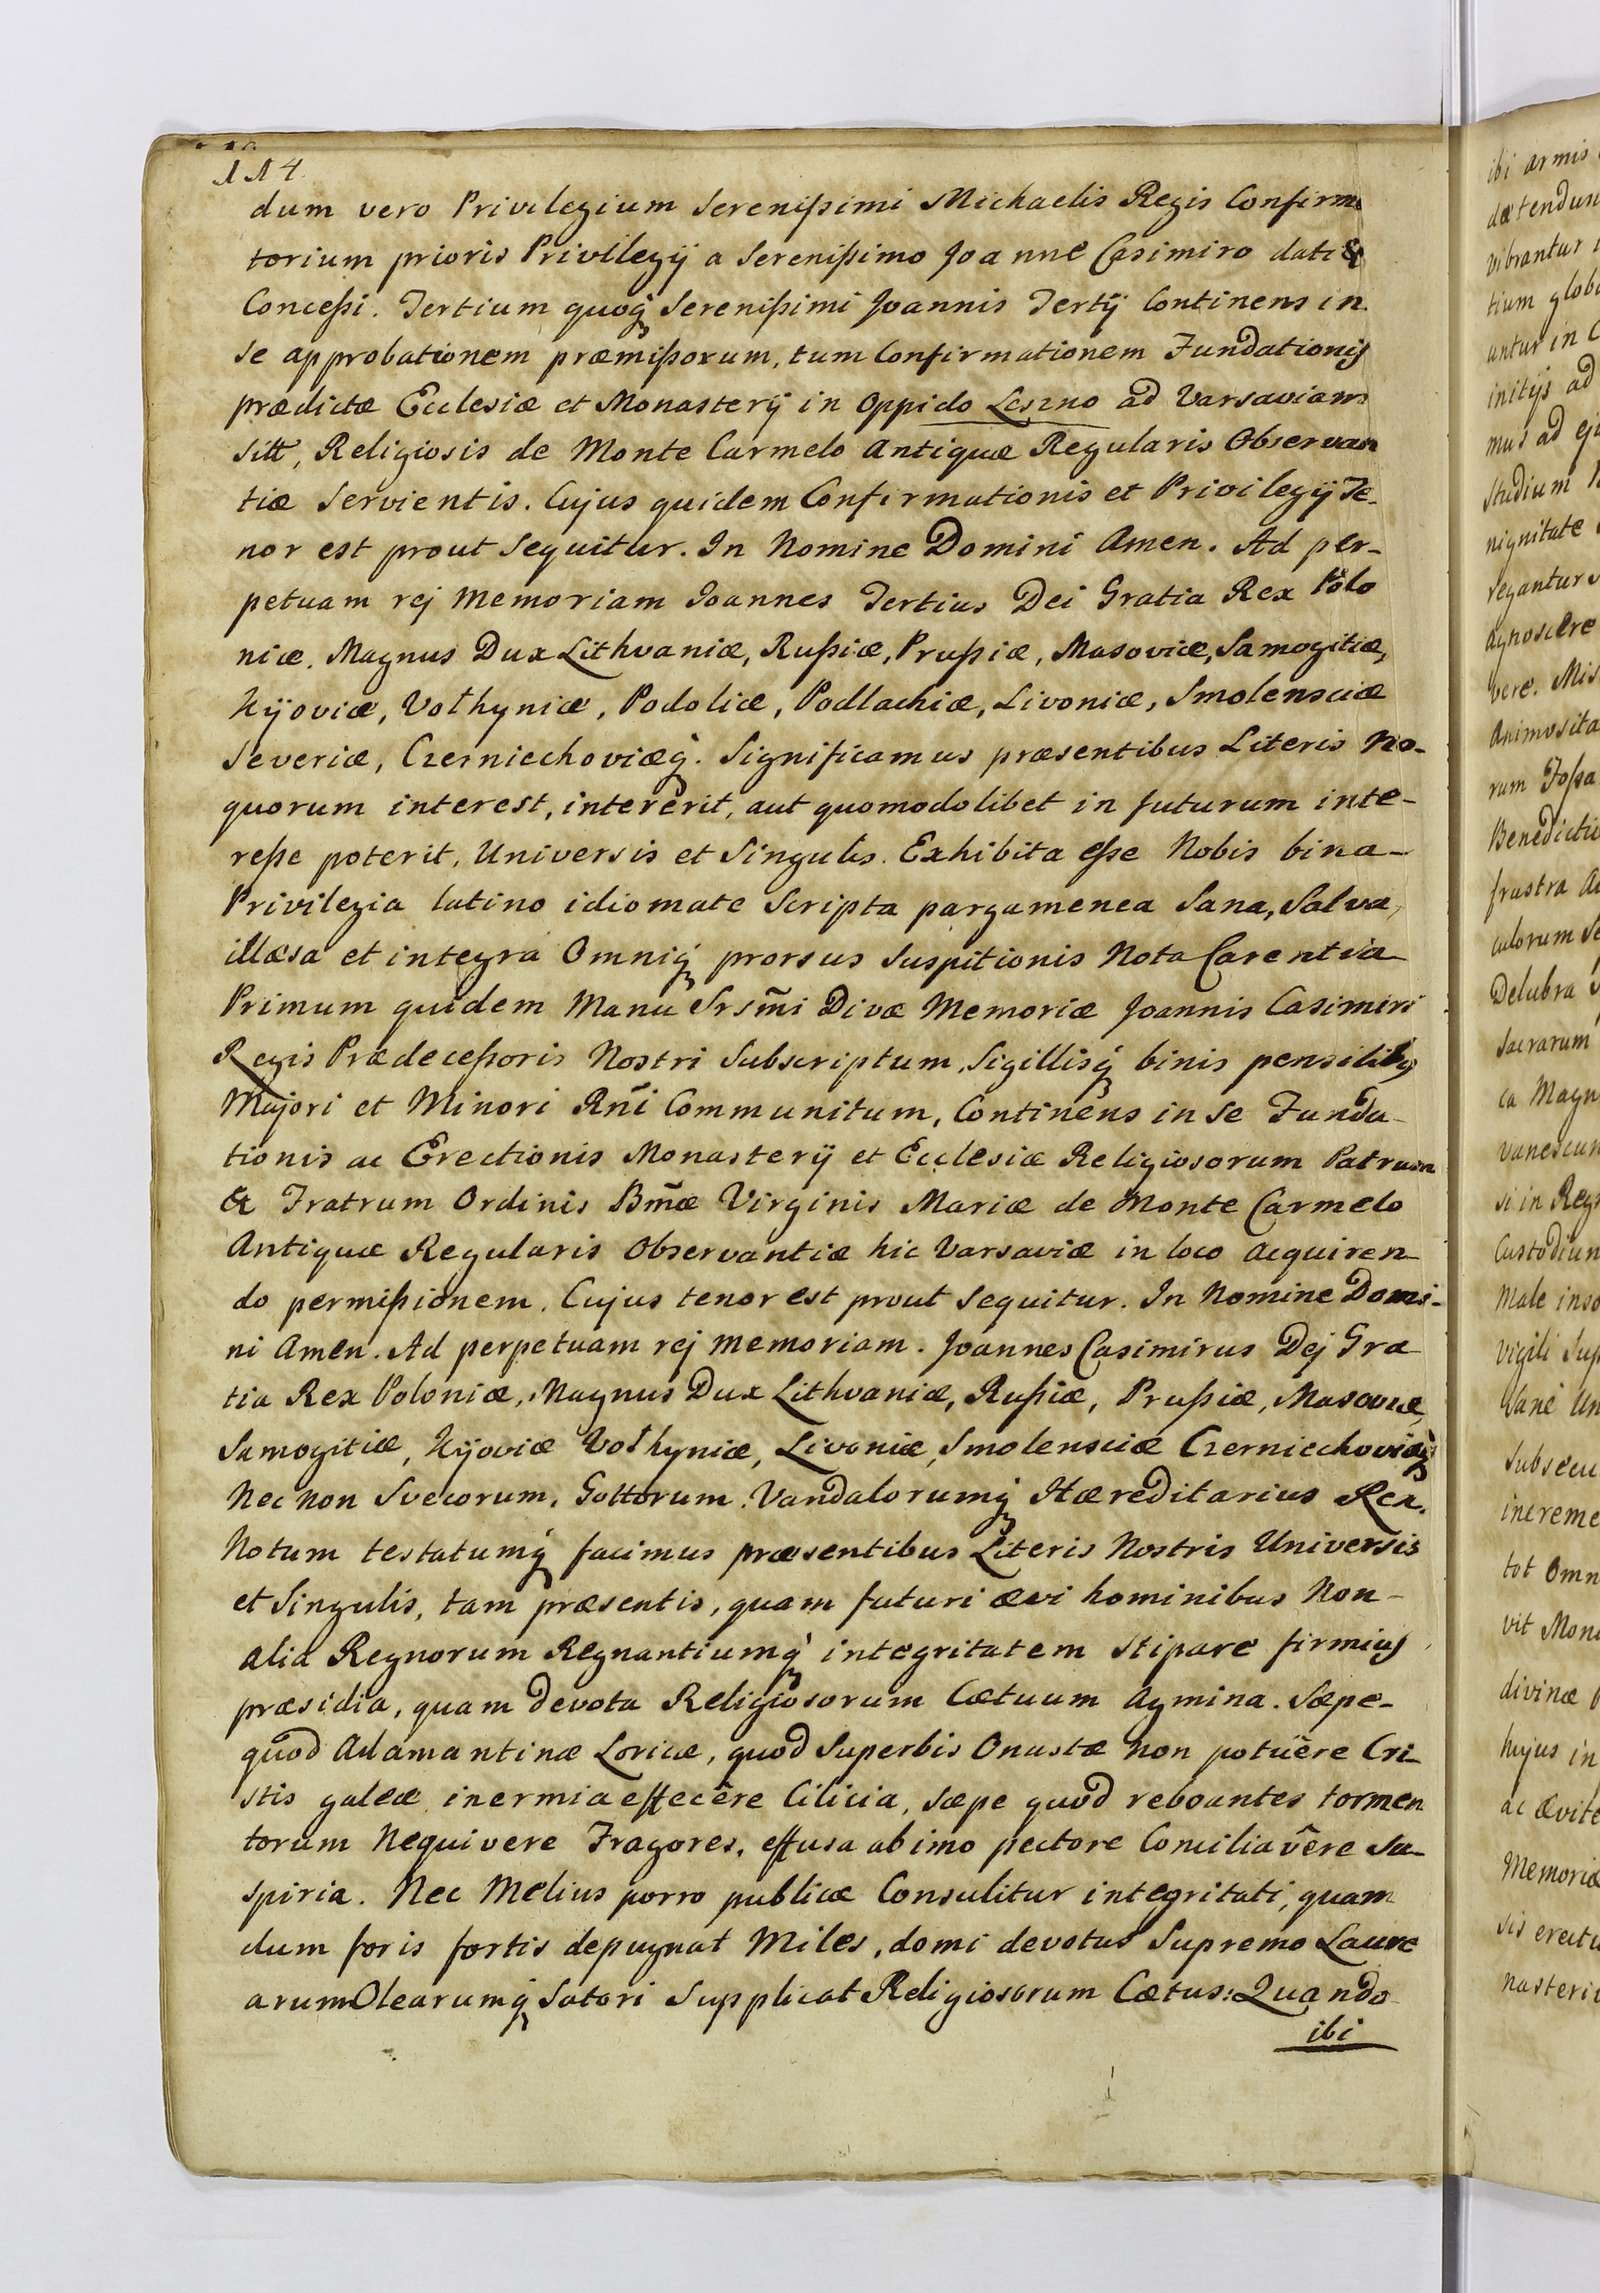 114
dum vero Privilegium Serenißimi Michaelis Regis Confirma
torium prioris Privilegij a Serenißimo Joanne Casimiro dati &
Conceßi. Tertium quoq́ Serenißimi Joannis Tertij Continens in
se approbationem præmißorum, tum Confirmationem Fundationis
prædictæ Ecclesiæ et Monasterij in Oppido Leszno ad Varsaviam
sitt, Religiosis de Monte Carmelo Antiquæ Regularis Observan
tiæ Servientis. Cujus quidem Confirmationis et Privilegij Te-
nor est prout Sequitur. In Nomine Domini Amen. Ad per-
petuam rej Memoriam Joannes Tertius Dei Gratia Rex Polo
niæ, Magnus Dux Lithvaniæ, Rußiæ, Prußiæ, Masoviæ, Samogitiæ,
Kijoviæ, Vołhyniæ, Podoliæ, Podlachiæ, Livoniæ, Smolensciæ
Severiæ, Czerniechoviæq́. Significamus præsentibus Literis No-
quorum interest, intererit, aut quomodolibet in futurum inte-
reße poterit, Universis et Singulis. Exhibita eße Nobis bina-
Privilegia latino idiomate Scripta pargamenea Sana, Salva,
illæsa et integra Omniq́ prorsus Suspitionis Nota Carentia
Primum quidem Manu Srsm̃i Divæ Memoriæ Joannis Casimiri
Regis Prædeceßoris Nostri Subscriptum, Sigillisq́ binis pensilibus
Majori et Minori Rñi Communitum, Continens in se Funda-
tionis ac Erectionis Monasterij et Ecclesiæ Religiosorum Patrum
& Fratrum Ordinis Bm̃æ Virginis Mariæ de Monte Carmelo
Antiquæ Regularis Observantiæ hic Varsaviæ in loco acquiren-
do permißionem. Cujus tenor est prout Sequitur. In Nomine Domi-
ni Amen. Ad perpetuam rej memoriam. Joannes Casimirus Dej Gra
tia Rex Poloniæ, Magnus Dux Lithvaniæ, Rußiæ, Prußiæ, Masoviæ,
Samogitiæ, Kijoviæ Vołhyniæ, Livoniæ, Smolensciæ Czerniechoviæq́
Nec non Svecorum, Gottorum, Vandalorumq́ Hæreditarius Rex.
Notum testatumq́ facimus præsentibus Literis Nostris Universis
et Singulis, tam præsentis, quam futuri ævi hominibus Non-
alia Regnorum Regnantiumq́ integritatem Stipare firmius
præsidia, quam devota Religiosorum Cætuum Agmina. Sæpe-
quod Adamantinæ Loricæ, quod Superbis Onustæ non potuêre Cri-
stis galeæ inermia effecêre Cilicia, Sæpe quod reboantes tormen
torum Nequivere Fragores, effusa ab imo pectore Conciliavêre Su-
spiria. Nec Melius porro publicæ Consulitur integritati, quam
dum foris fortis depugnat Miles, domi devotus Supremo Laure
arum Olearumq́ Satori Supplicat Religiosorum Cætus: Quando
ibi
ibi armis
vibrantur
tium glob
untur in C
initijs ad
mus ad ej
Studium
nignitate
regantur
agnoscere
vere. Mis
Animosita
rum Foßa
Benedictio
frustra
culorum Se
Delubra
Sacrarum
ca Magn
vanescun
si in Reg
Custodiun
Male inso
Vigili Sup
Sanè Un
Subsecu
increme
tot Omn
vit Mon
divinæ
hujus in
ac Ævite
Memoriæ
sis erectu
nasterij